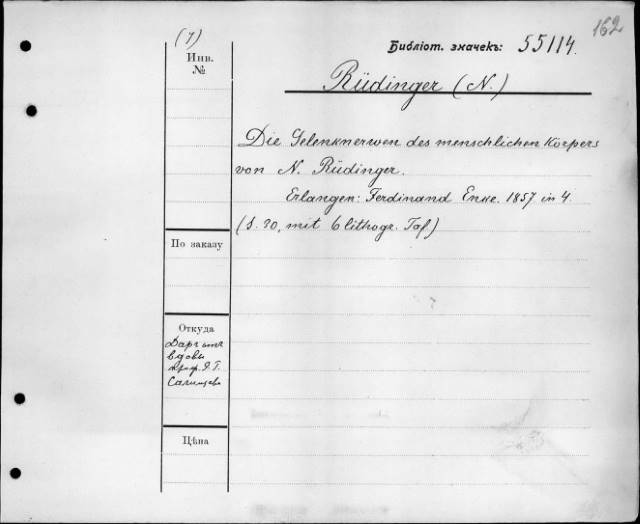 162
(7)
Библіот. значекъ: 55114.
Инв.
№
Rüdinger (N.)
Die Gelenknerven des menschlichen Körpers
von N. Rüdinger.
Erlangen: Ferdinand Enke. 1857. in 4.
(S. 20, mit 6 lithogr. Taf)
По заказу
Откуда
Даръ отъ
вдовы
проф. Э. Г.
Салищева
Цѣна